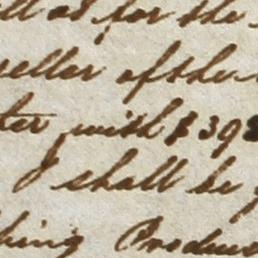 ell as for the
seller of the
ter with $398
I shall be
thing Produce